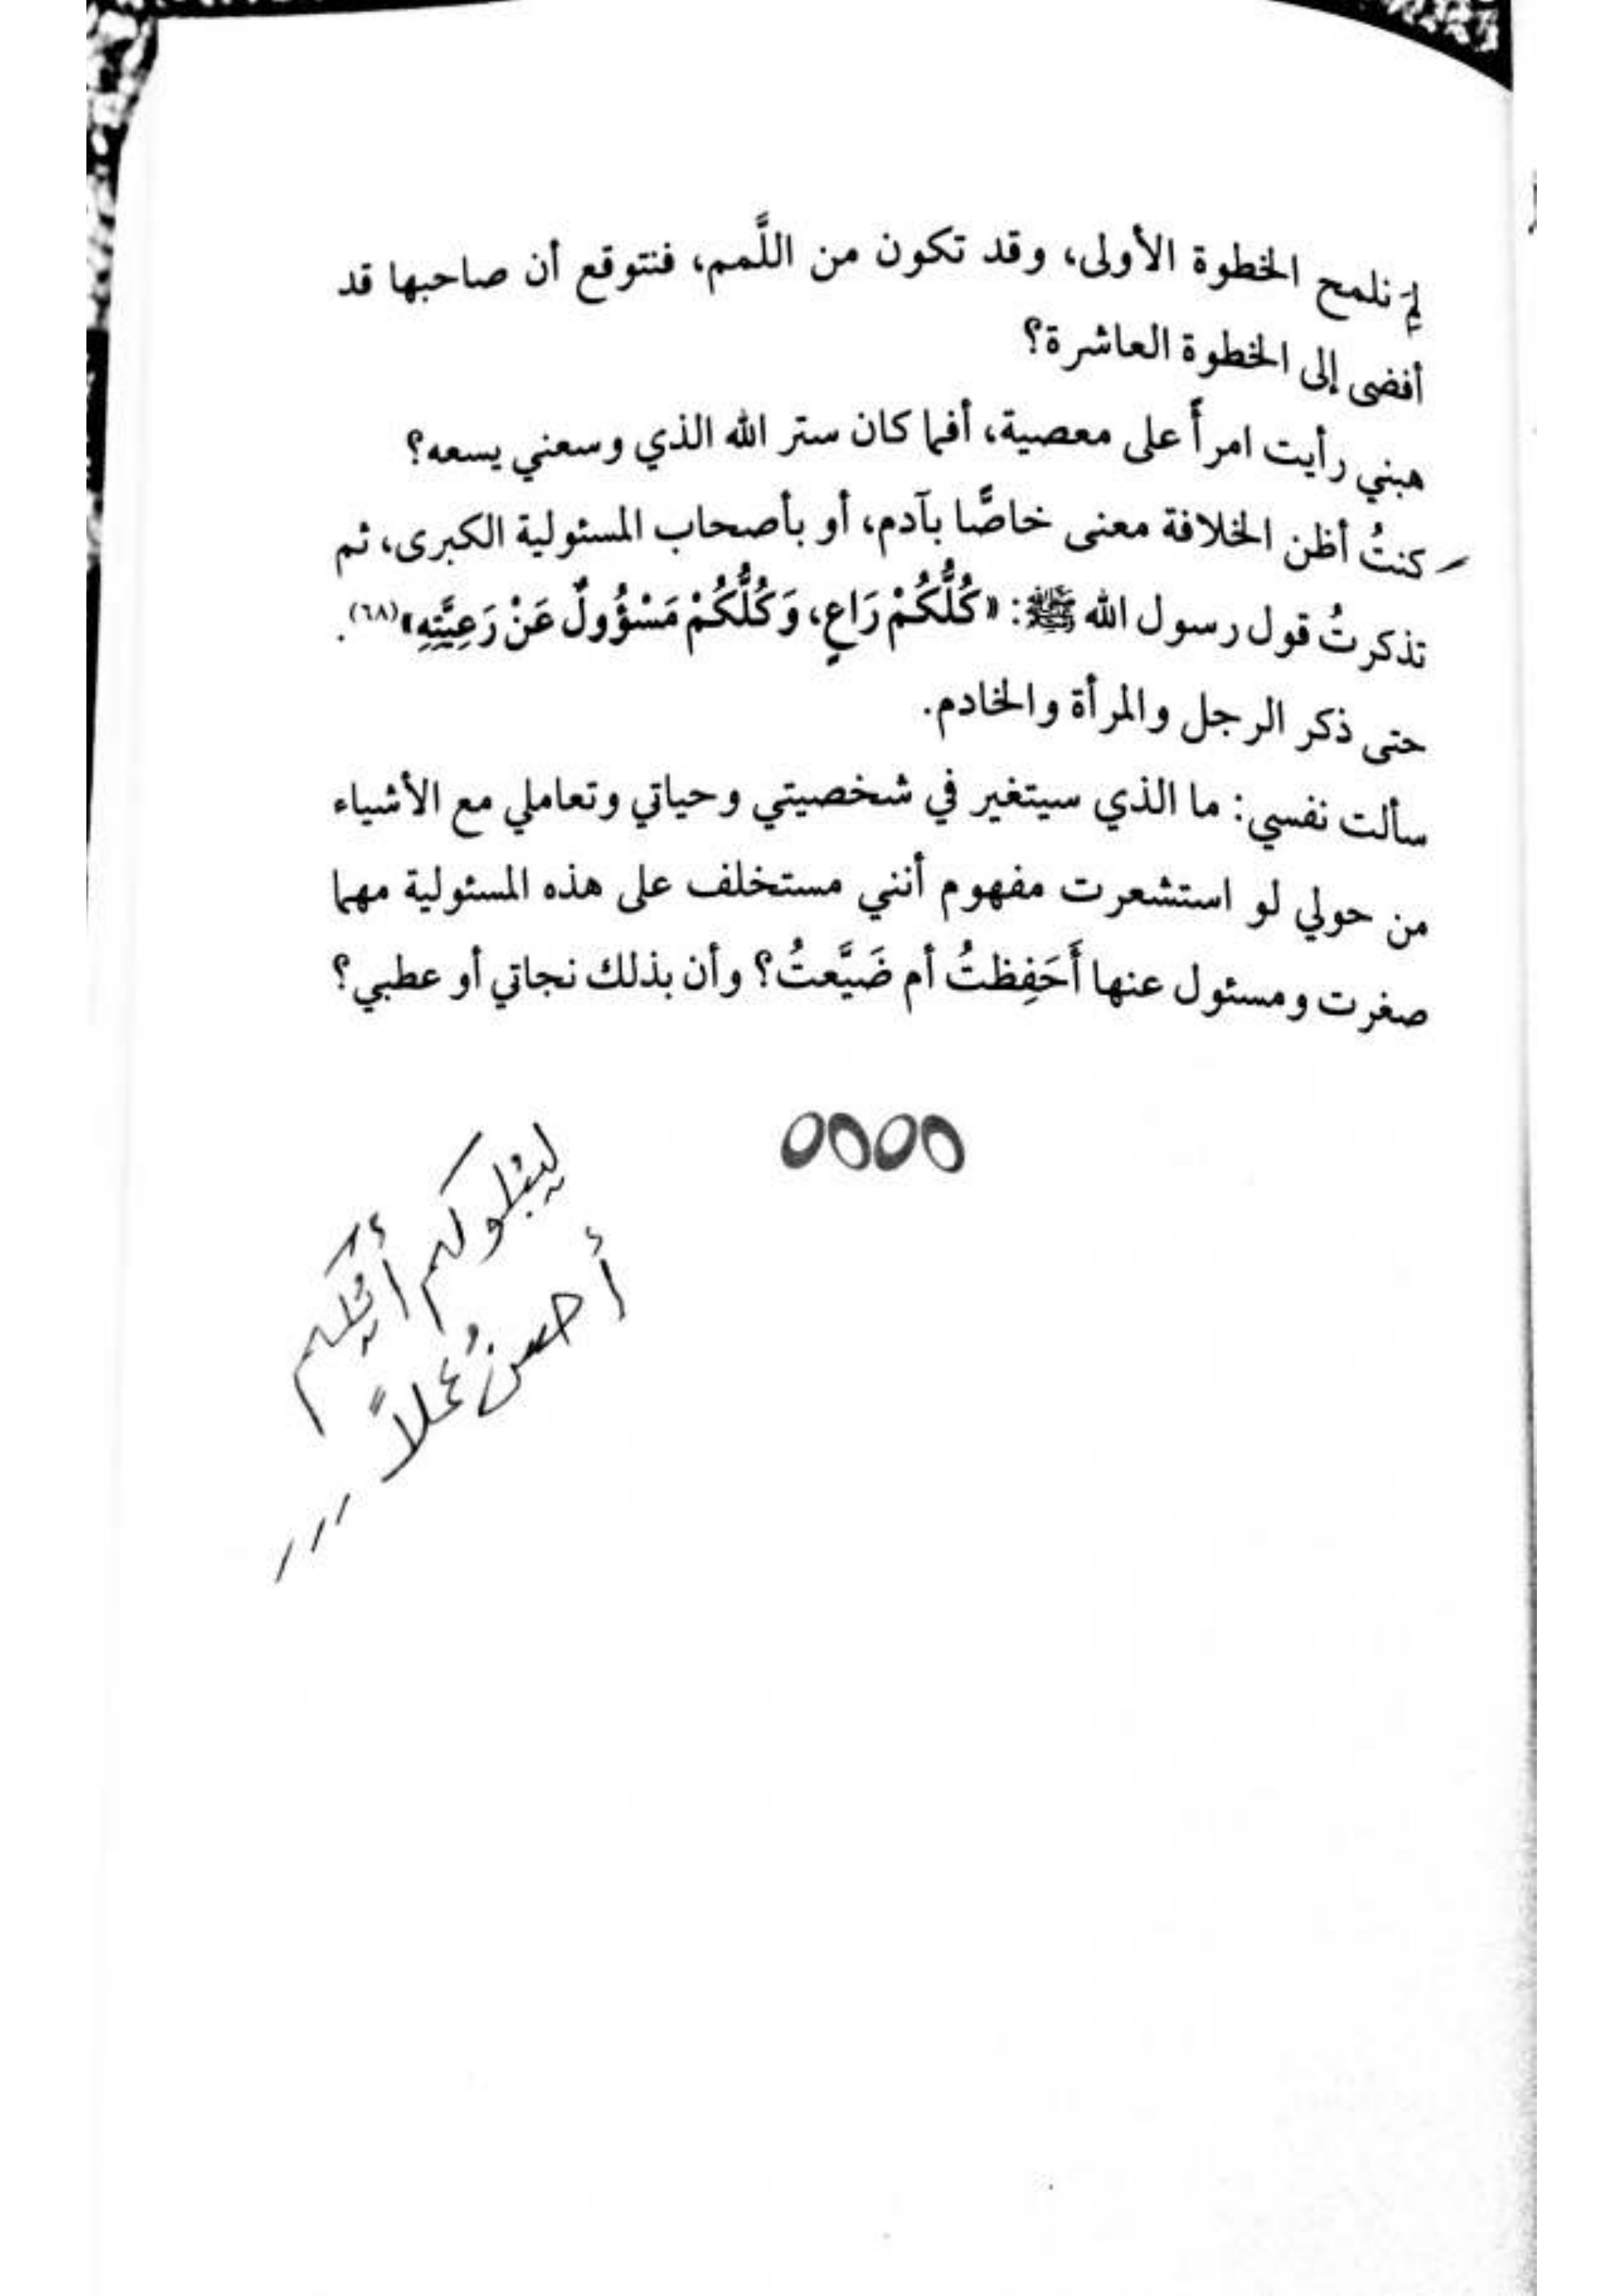 لِمَ نلمح الخطوة الأولى، وقد تكون من اللَّمم، فنتوقع أن صاحبها قد
أفضى إلى الخطوة العاشرة؟
هبني رأيت امرأً على معصية، أفما كان ستر الله الذي وسعني يسعه؟
كنتُ أظن الخلافة معنى خاصًّا بآدم، أو بأصحاب المسئولية الكبرى، ثم
تذكرتُ قول رسول الله ﷺ: «كُلُّكُمْ رَاعٍ، وَكُلُّكُمْ مَسْؤُولٌ عَنْ رَعِيَّتِهِ»(٦٨).
حتى ذكر الرجل والمرأة والخادم.
سألت نفسي: ما الذي سيتغير في شخصيتي وحياتي وتعاملي مع الأشياء
من حولي لو استشعرت مفهوم أنني مستخلف على هذه المسئولية مهما
صغرت ومسئول عنها أَحَفِظتُ أم ضَيَّعتُ؟ وأن بذلك نجاتي أو عطبي؟
ليبْلوكم أيُّكم
أحسنُ عملاً ...